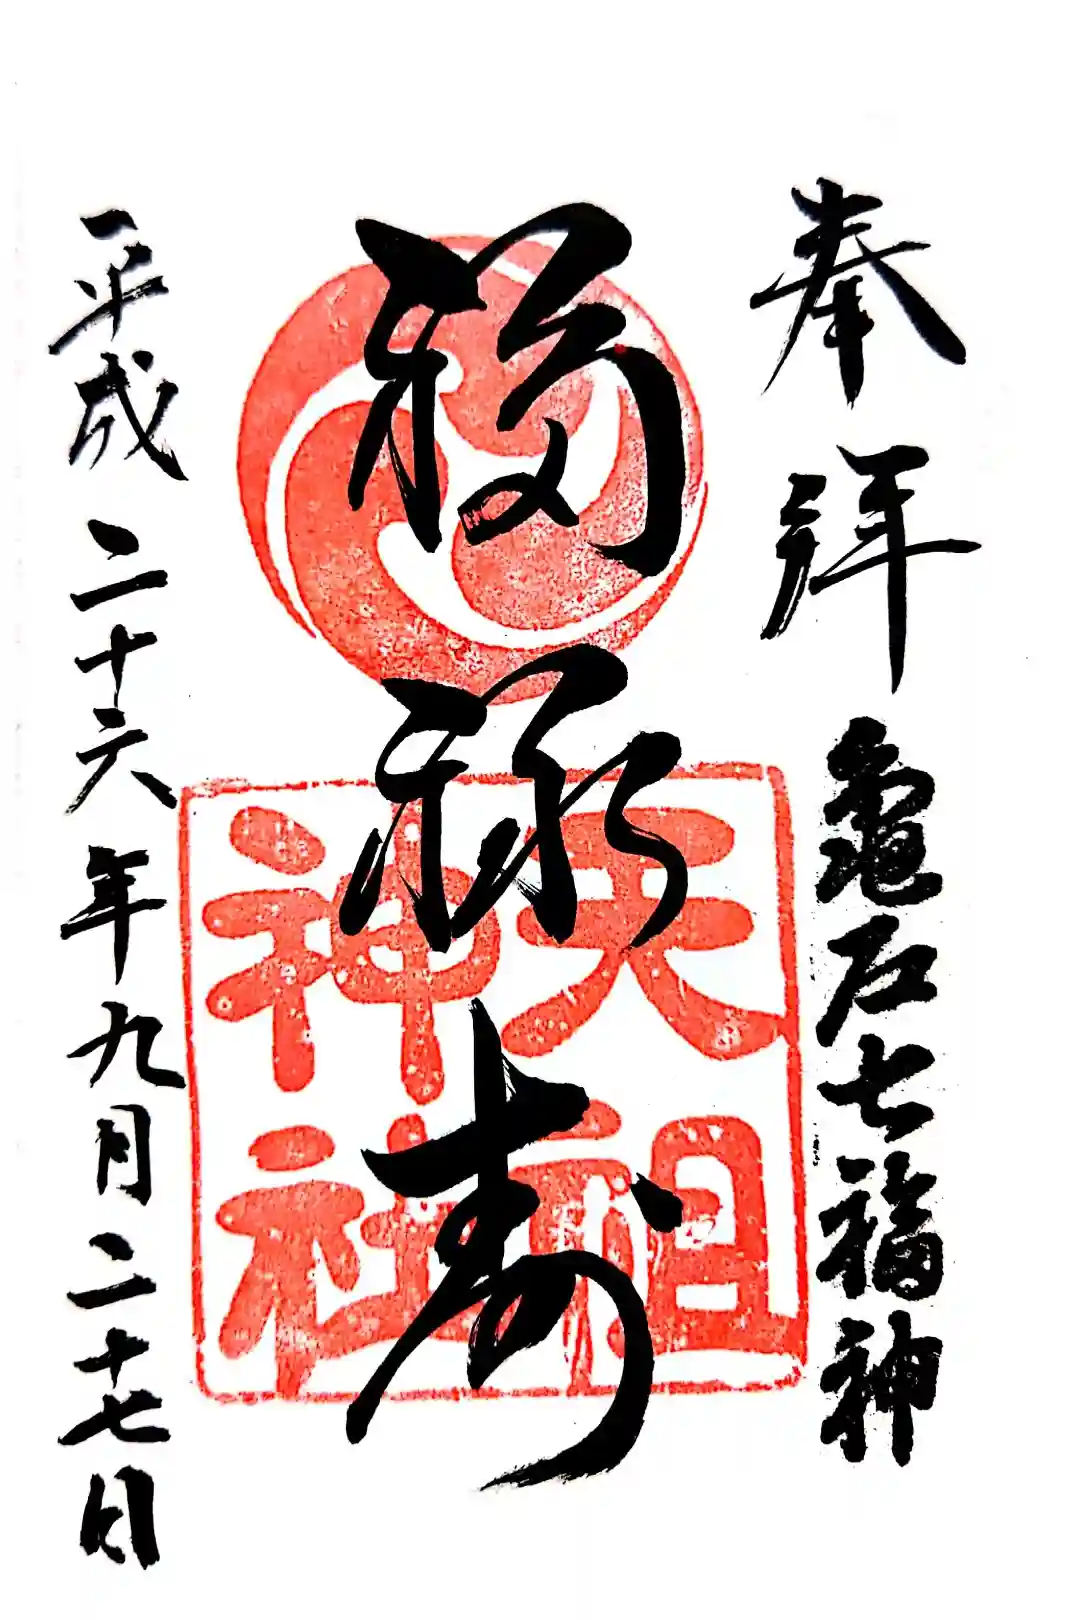 奉拝
亀戸七福神
福禄寿
天祖
神社
平成二十六年九月二十七日